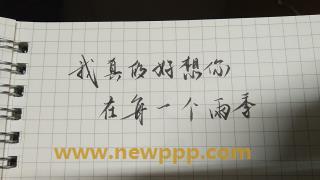 我真的好想你
在每一个雨季
www.newppp.com